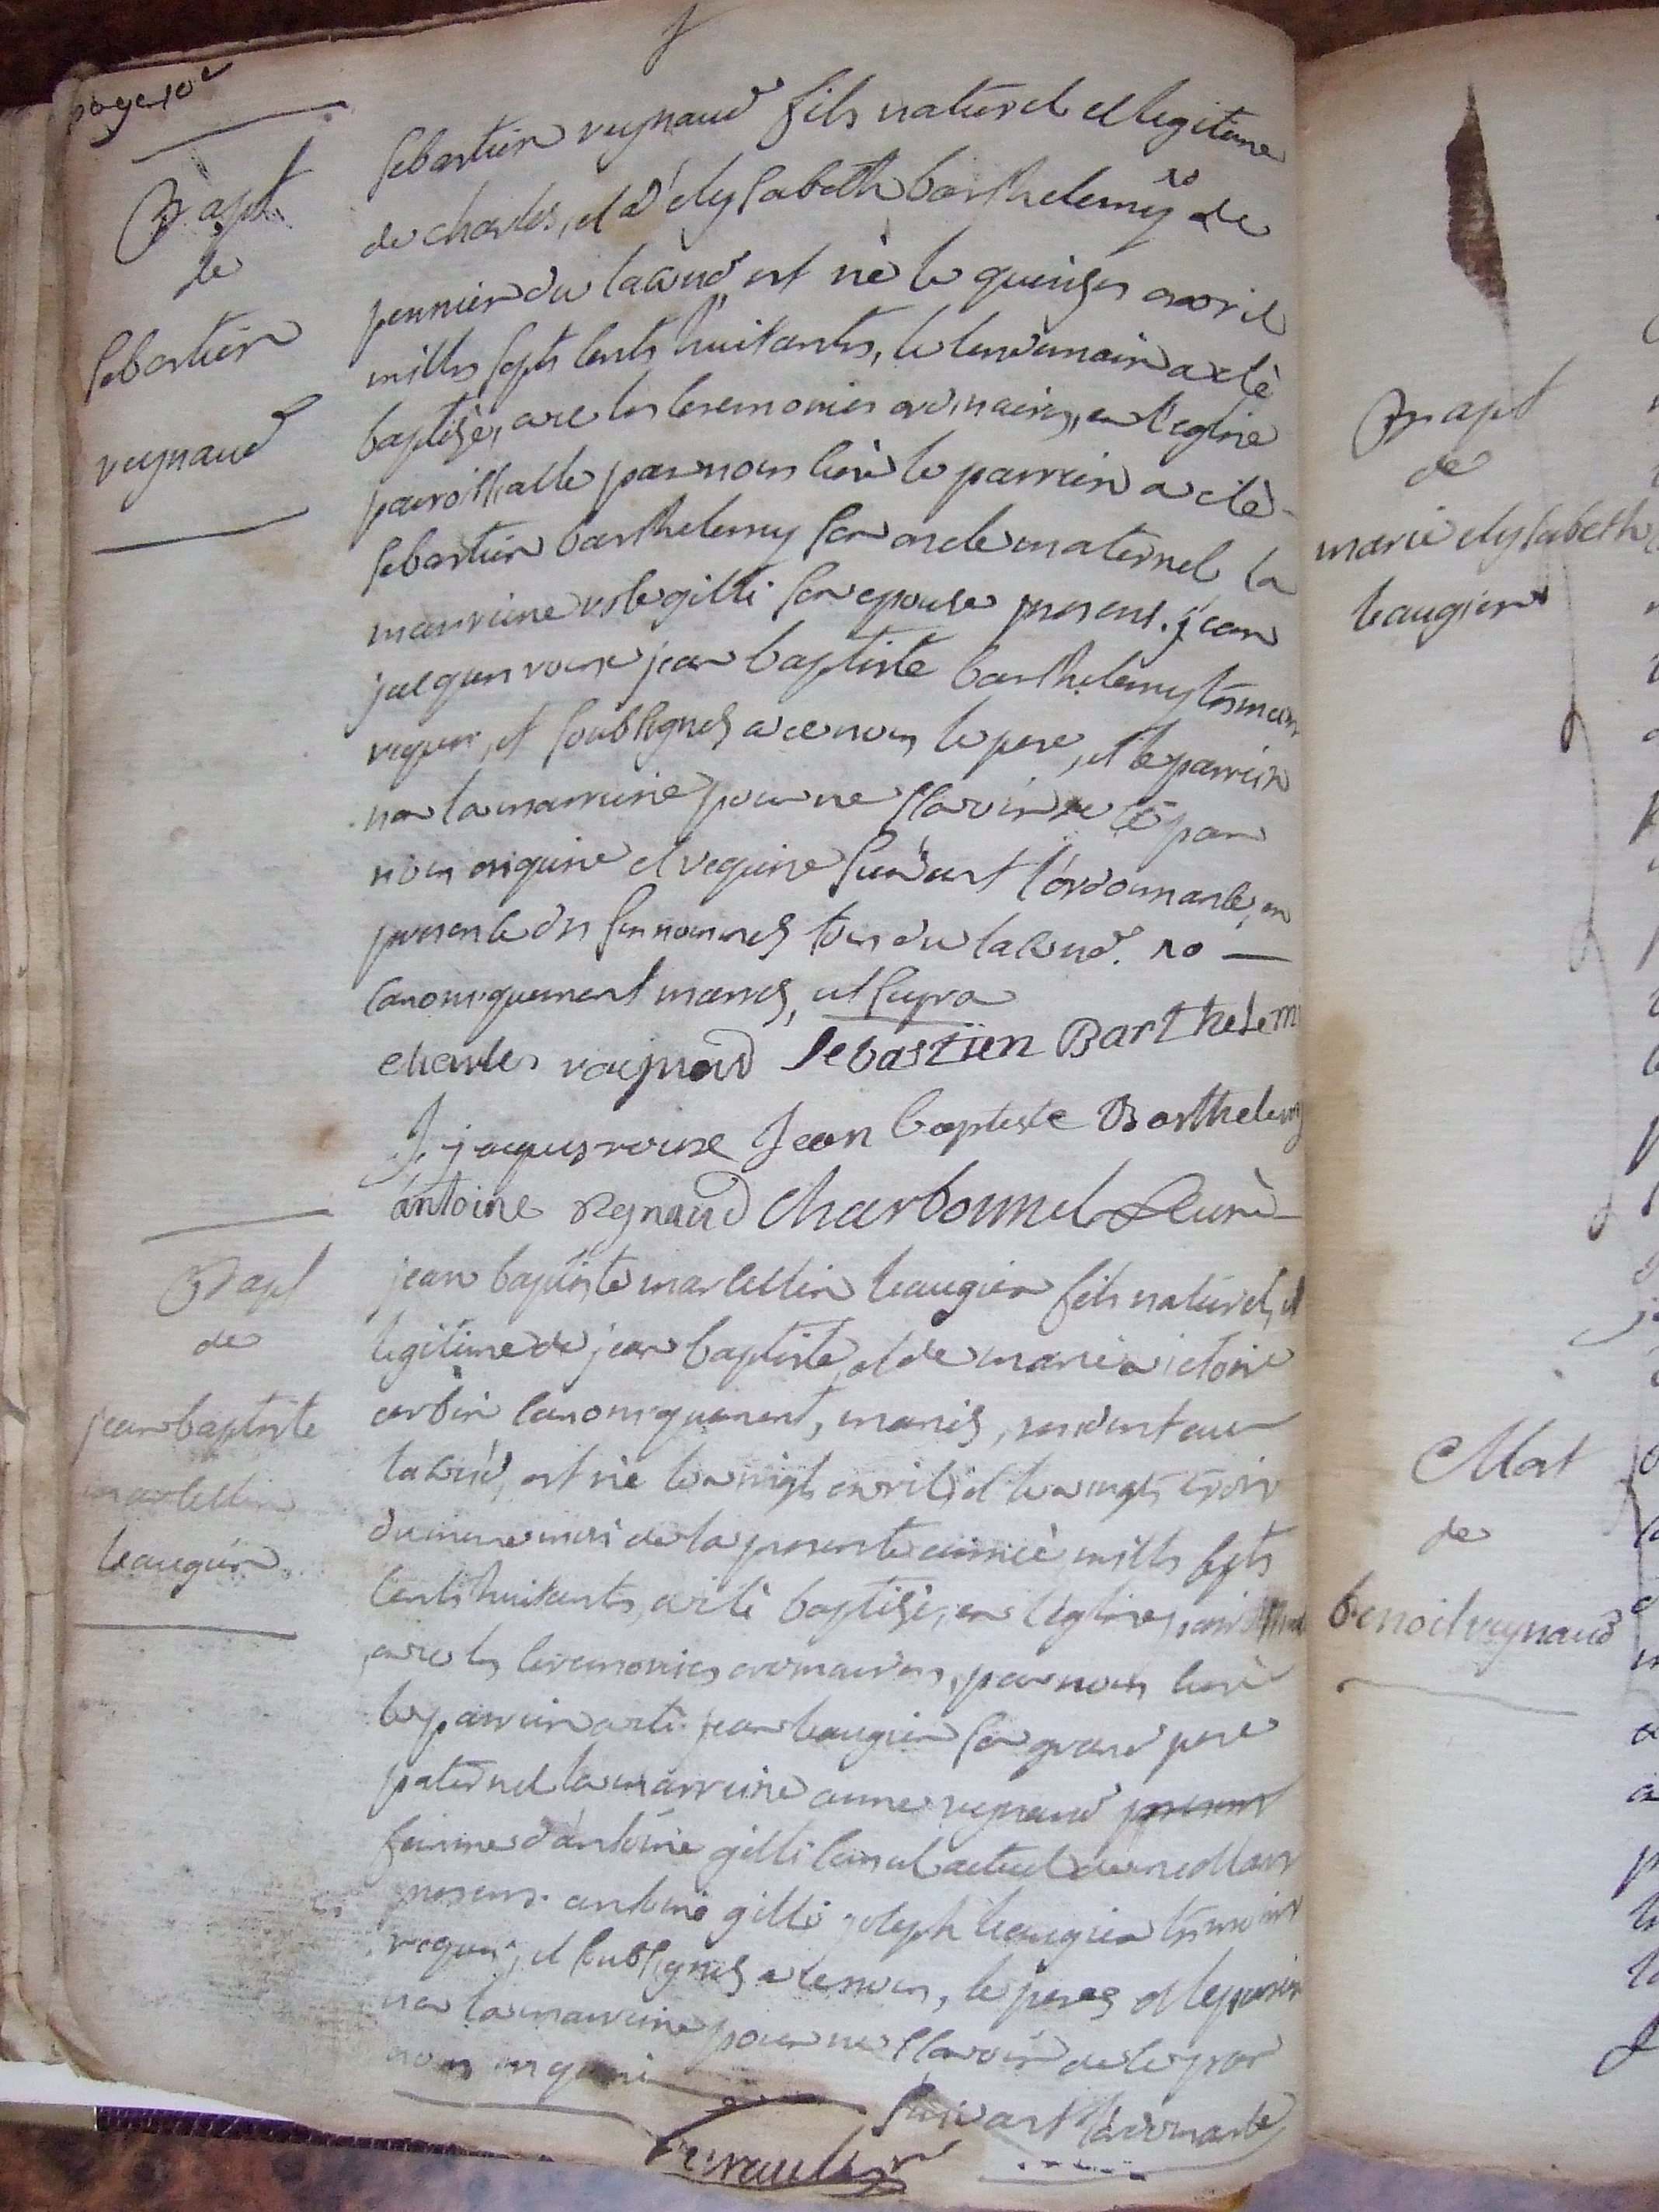 page 10e
Bapt
de
sebastien
reynaud
sebastien reynaud fils naturel et legitime
de charles, et d'elysabeth barthelemy ro de
du lacoud est né le quinzes avril
milles septs cents huitantes, le lendemain a eté
baptisé, avec les ceremonies ordinaires, en l'eglise
paroissialle par nous curé le parrein a eté
sebastien barthelemy son oncle maternel la
marreine gilli son epouse presens. jean
jacques roux jean baptiste barthelemy temoins
requis, et soubsignés avec nous le pere, et le parrein
non la marreine pour ne sçavoir de ce par
nous enquise et requise suivant l'ordonnance, en
presence des surnommés tous du lacoud. ro
canoniquement mariés, ut supra
charles raynaud sebastien Barthelemi
J. jacques roux Jean baptiste Barthelemy
antoine Reynaud Charbonnel Curé
Bapt
de
jean baptiste
marcellin
leaugier
jean baptiste marcellin leaugier fils naturel, et
legitime de jean baptiste et de marie victoire
canoniquement, mariés, residents au
lacoud, est né le vingt avril, et le vingt trois
du meme mois de la presente année milles septs
cents huitantes, a eté baptisé, en l'eglise
avec les ceremonies ordinaires, par nous curé
le parrein a eté jean leaugier son grand pere
paternel la marreine anne reynaud
femme d'antoine gilli consul actuel
presens. antoine gilli joseph leaugier temoins
requis, et soubsignés avec nous, le pere et le parrein
non la marreine pour ne sçavoir de ce par
nous enquise
suivant l'ordonnance
Bapt
de
marie elysabeth
leaugier
Mort
de
benoit reynaud